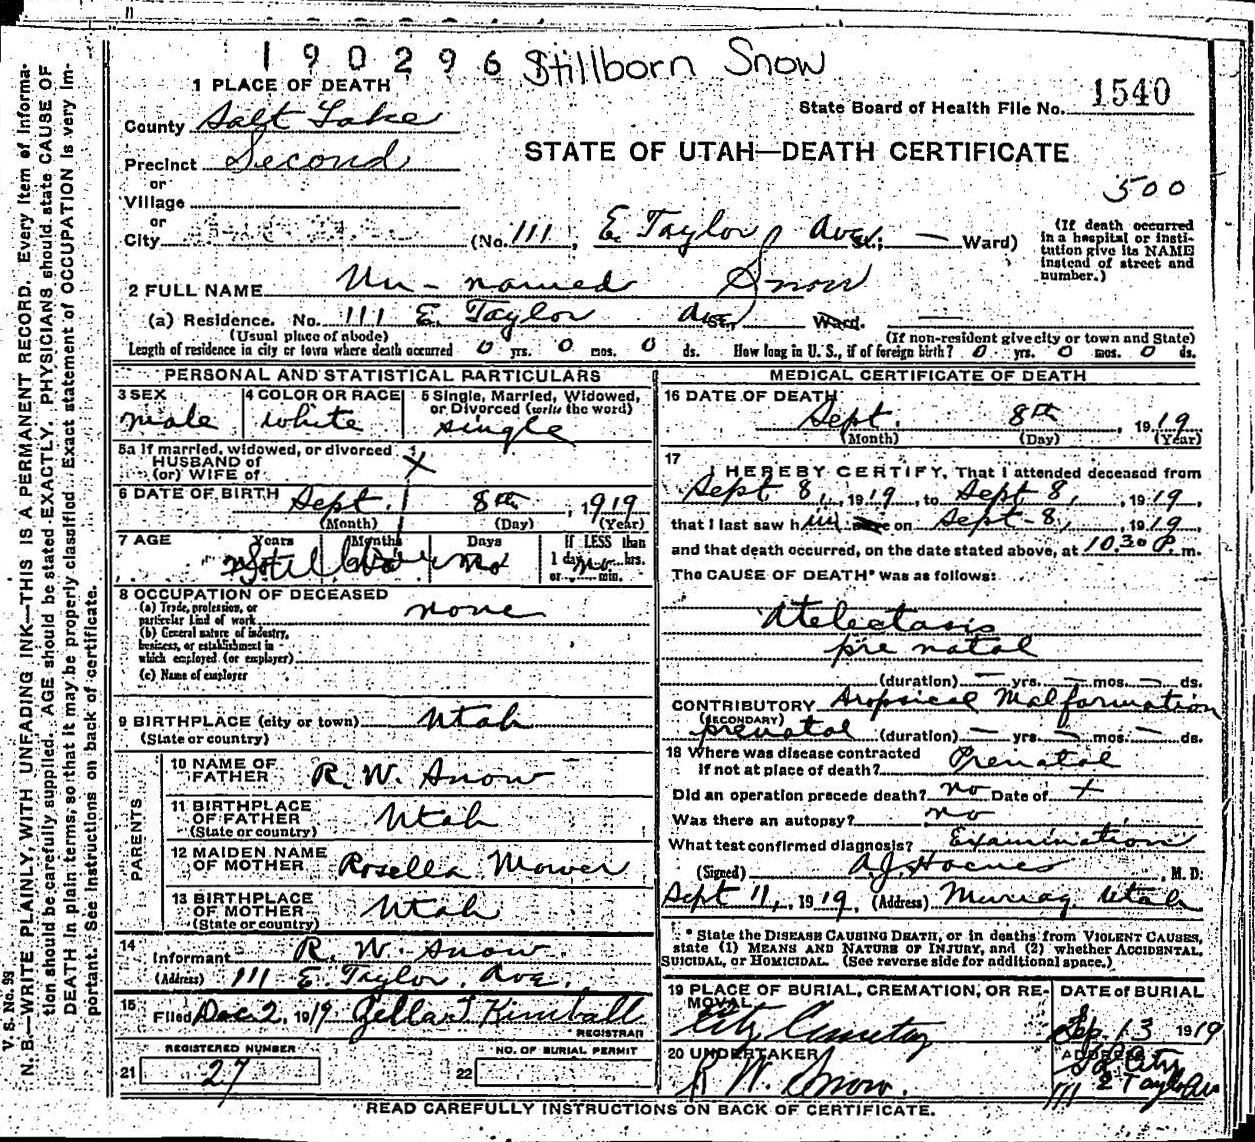 190296 Stillborn Snow
1 PLACE OF DEATH
State Board of Health File No. 1540
County Salt Lake
STATE OF UTAH—DEATH CERTIFICATE
Precinct Second
500
or
Village
or
City (No. 111, E. Taylor Ave St; — Ward)
(If death occurred in a hospital or institution give its NAME instead of street and number.)
2 FULL NAME Un-named Snow
(a) Residence. No. 111 E. Taylor Ave St., Ward. —
(Usual place of abode) (If non-resident give city or town and State)
Length of residence in city or town where death occurred 0 yrs. 0 mos. 0 ds. How long in U. S., if of foreign birth? 0 yrs. 0 mos. 0 ds.
PERSONAL AND STATISTICAL PARTICULARS
3 SEX male
4 COLOR OR RACE white
5 Single, Married, Widowed, or Divorced (write the word) single
5a If married, widowed, or divorced
HUSBAND of
(or) WIFE of
X
6 DATE OF BIRTH Sept. 8th, 1919
(Month) (Day) (Year)
7 AGE Years Months Days If LESS than 1 day, hrs. or min.
Stillborn
8 OCCUPATION OF DECEASED
(a) Trade, profession, or particular kind of work none
(b) General nature of industry, business, or establishment in which employed (or employer)
(c) Name of employer
9 BIRTHPLACE (city or town) Utah
(State or country)
PARENTS
10 NAME OF FATHER R. W. Snow
11 BIRTHPLACE OF FATHER Utah
(State or country)
12 MAIDEN NAME OF MOTHER Rosella Mower
13 BIRTHPLACE OF MOTHER Utah
(State or country)
14 Informant R. W. Snow
(Address) 111 E. Taylor Ave.
15 Filed Dec 2, 1919 Zella T Kimball
REGISTRAR
REGISTERED NUMBER
21 27
NO. OF BURIAL PERMIT
22
MEDICAL CERTIFICATE OF DEATH
16 DATE OF DEATH
Sept. 8th, 1919
(Month) (Day) (Year)
17 I HEREBY CERTIFY, That I attended deceased from
Sept 8, 1919, to Sept 8, 1919,
that I last saw him on Sept-8, 1919
and that death occurred, on the date stated above, at 10.30 P. m.
The CAUSE OF DEATH* was as follows:
Atelectasis
pre natal
(duration) — yrs. — mos. — ds.
CONTRIBUTORY Dropsical Malformation
(SECONDARY)
prenatal (duration) — yrs. — mos. — ds.
18 Where was disease contracted
if not at place of death? Prenatal
Did an operation precede death? no Date of +
Was there an autopsy? no
What test confirmed diagnosis? Examination
(Signed) A. J. , M. D.
Sept 11, 1919, (Address) Murray Utah
* State the DISEASE CAUSING DEATH, or in deaths from VIOLENT CAUSES,
state (1) MEANS AND NATURE OF INJURY, and (2) whether ACCIDENTAL,
SUICIDAL, or HOMICIDAL. (See reverse side for additional space.)
19 PLACE OF BURIAL, CREMATION, OR REMOVAL
City Cemetery
DATE of BURIAL
Sep. 13 1919
20 UNDERTAKER
R W. Snow.
ADDRESS
City
111 Taylor Av
READ CAREFULLY INSTRUCTIONS ON BACK OF CERTIFICATE.
V. S. No. 99
N. B.—WRITE PLAINLY, WITH UNFADING INK—THIS IS A PERMANENT RECORD. Every item of information should be carefully supplied. AGE should be stated EXACTLY. PHYSICIANS should state CAUSE OF DEATH in plain terms, so that it may be properly classified. Exact statement of OCCUPATION is very important. See instructions on back of certificate.